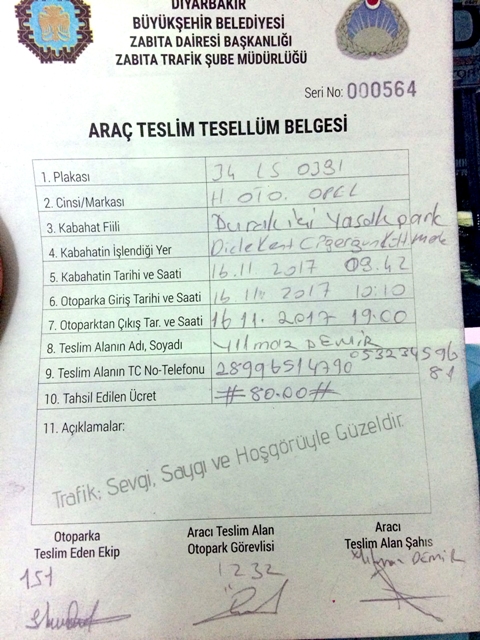 DİYARBAKIR
BÜYÜKŞEHİR BELEDİYESİ
ZABITA DAİRESİ BAŞKANLIĞI
ZABITA TRAFİK ŞUBE MÜDÜRLÜĞÜ
Seri No: 000564
ARAÇ TESLİM TESELLÜM BELGESİ
1. Plakası 34 LS 0391
2. Cinsi/Markası H. OTO. OPEL
3. Kabahat Fiili Durak içi Yasak park
4. Kabahatin İşlendiği Yer Diclekent
5. Kabahatin Tarihi ve Saati 16.11.2017 09.42
6. Otoparka Giriş Tarihi ve Saati 16.11.2017 10:10
7. Otoparktan Çıkış Tar. ve Saati 16.11.2017 19:00
8. Teslim Alanın Adı, Soyadı Yılmaz DEMİR
9. Teslim Alanın TC No-Telefonu 28996514790 053234596
81
10. Tahsil Edilen Ücret #80.00#
11. Açıklamalar:
Trafik; Sevgi, Saygı ve Hoşgörüyle Güzeldir.
Otoparka Teslim Eden Ekip
151
Aracı Teslim Alan Otopark Görevlisi
1232
Aracı Teslim Alan Şahıs
Yılmaz DEMİR